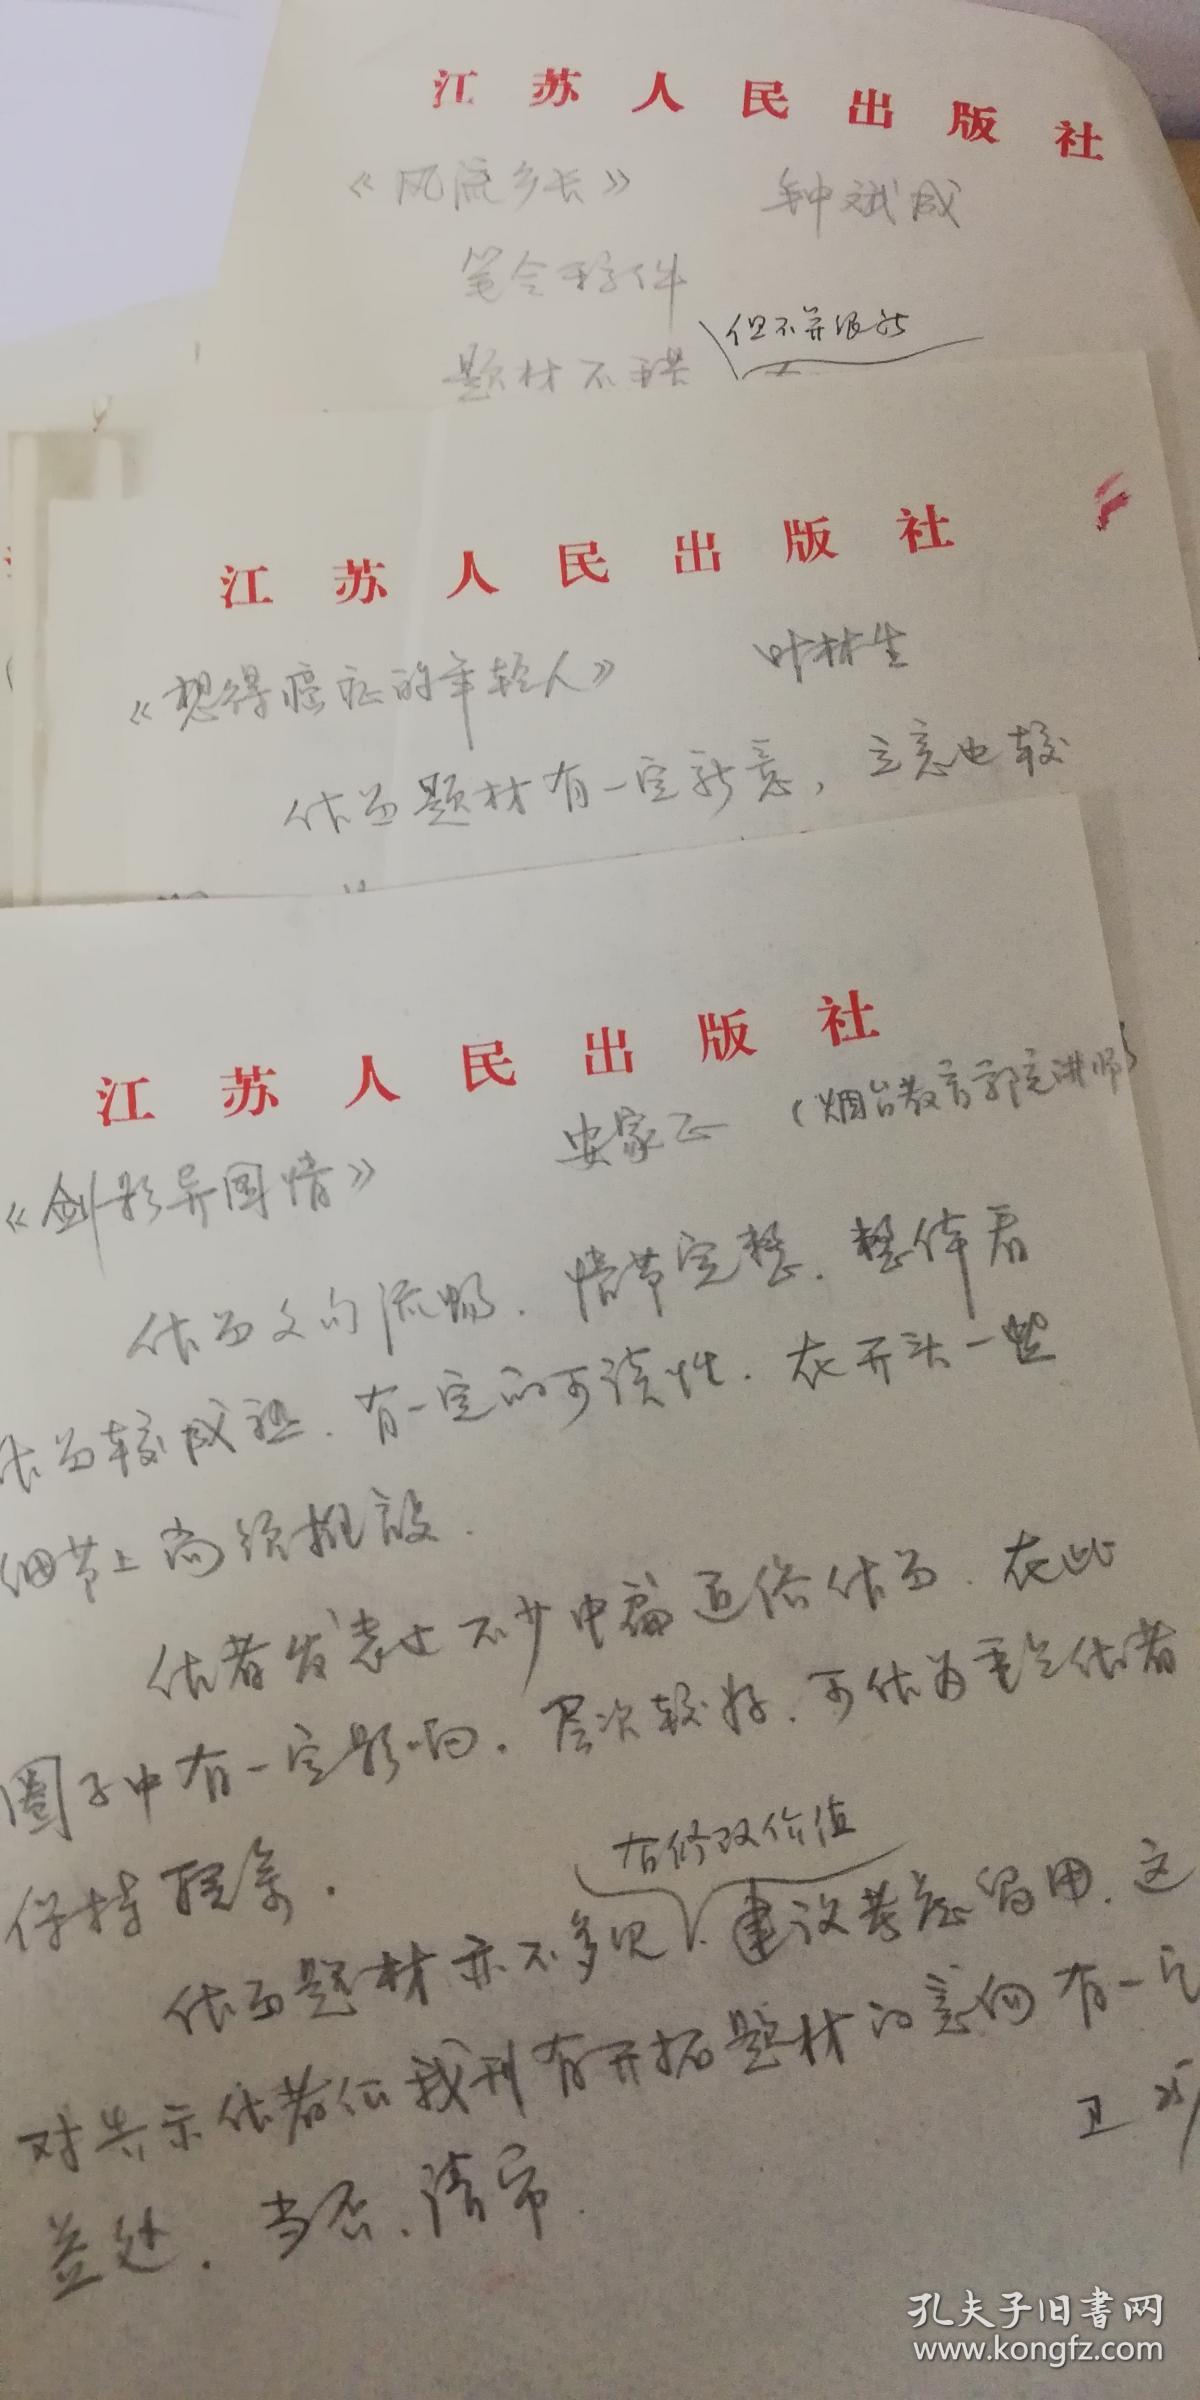 江苏人民出版社
《风流乡长》 钟斌成
笔会稿件
但不并很新
题材不错
江苏人民出版社
《想得癌症的年轻人》 叶林生
作品题材有一定新意，立意也较
江苏人民出版社
《剑影异国情》 安家正 （烟台教育学院讲师）
作品文句流畅．情节完整．整体看
作品较成熟．有一定的可读性．在开头一些
细节上尚须推敲．
作者发表过不少中篇通俗作品．在此
圈子中有一定影响．层次较好．可作为重点作者
保持联系．
有修改价值
作品题材亦不多见．建议考虑留用．这
对告示作者们我刊有开拓题材的意向有一定
益处．当否、请审．
卫
孔夫子旧书网
www.kongfz.com